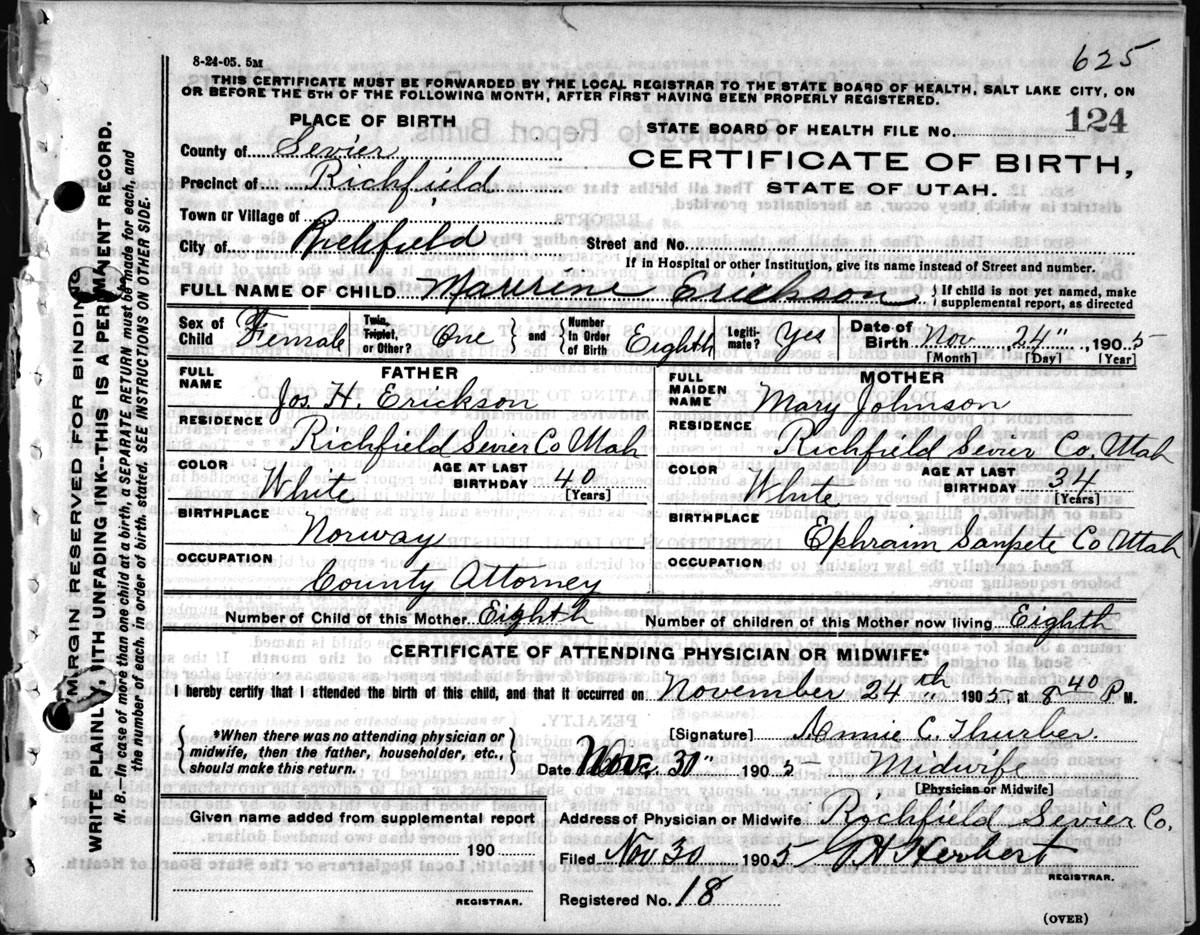 625
8-24-05. 5M
THIS CERTIFICATE MUST BE FORWARDED BY THE LOCAL REGISTRAR TO THE STATE BOARD OF HEALTH, SALT LAKE CITY, ON
OR BEFORE THE 5TH OF THE FOLLOWING MONTH, AFTER FIRST HAVING BEEN PROPERLY REGISTERED.
PLACE OF BIRTH
STATE BOARD OF HEALTH FILE NO. 124
County of Sevier
CERTIFICATE OF BIRTH,
Precinct of Richfield
STATE OF UTAH.
Town or Village of
City of Richfield
Street and No.
If in Hospital or other Institution, give its name instead of Street and number.
FULL NAME OF CHILD Maurine Erickson { If child is not yet named, make
supplemental report, as directed
Sex of Child Female
Twin, Triplet, or Other? One } and { Number in Order of Birth Eighth
Legiti- mate? Yes
Date of Birth Nov 24", 1905
[Month] [Day] [Year]
FATHER
FULL NAME Jos H. Erickson
RESIDENCE Richfield Sevier Co Utah
COLOR White AGE AT LAST BIRTHDAY 40 [Years]
BIRTHPLACE Norway
OCCUPATION County Attorney
MOTHER
FULL MAIDEN NAME Mary Johnson
RESIDENCE Richfield Sevier Co. Utah
COLOR White AGE AT LAST BIRTHDAY 34 [Years]
BIRTHPLACE Ephraim Sanpete Co Utah
OCCUPATION
Number of Child of this Mother Eighth Number of children of this Mother now living Eighth
CERTIFICATE OF ATTENDING PHYSICIAN OR MIDWIFE*
I hereby certify that I attended the birth of this child, and that it occurred on November 24th 1905, at 8 40 P M.
{ *When there was no attending physician or
midwife, then the father, householder, etc.,
should make this return. }
[Signature] Annie C. Thurber.
Date Nov. 30" 1905 Midwife
[Physician or Midwife]
Given name added from supplemental report
190
REGISTRAR.
Address of Physician or Midwife Richfield Sevier Co.
Filed Nov 30 1905 Herbert
REGISTRAR.
Registered No. 18
(OVER)
MARGIN RESERVED FOR BINDING
WRITE PLAINLY, WITH UNFADING INK--THIS IS A PERMANENT RECORD.
N. B.—In case of more than one child at a birth, a SEPARATE RETURN must be made for each, and
the number of each, in order of birth, stated. SEE INSTRUCTIONS ON OTHER SIDE.